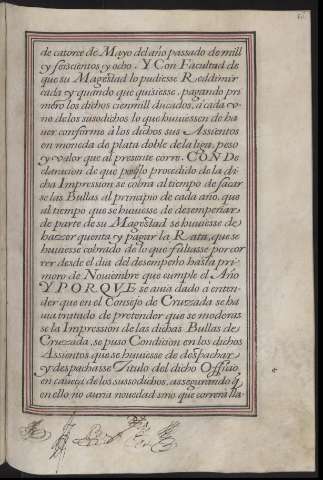 de catorce de Mayo del año passado de mill
y seiscientos y ocho. Y Con Facultad de
que su Magestad lo pudiesse Reddimir
cada y quando que quisiesse, pagando pri
mero los dichos cien mill ducados, à cada vo
no de los susodichos lo que huuiessen de ha
uer conforme à los dichos sus Assientos
en moneda de plata doble de la liga, peso
y valor que al presente corre. CON De
claracion de que porq lo procedido de la di
cha Impression se cobra al tiempo de sacar
se las Bullas al principio de cada año, que
al tiempo que se huuiesse de desempeñar
de parte de su Magestad se huuiesse de
hazzer quenta y pagar la Rata, que se
huuiesse cobrado de lo que faltasse por cor
rer desde el dia del desempeño hasta pri
mero de Nouiembre que cumple el Año
Y PORQVE se auia dado à enten
der que en el Consejo de Cruzada se ha
uia tratado de pretender que se moderas
se la Impression de las dichas Bullas de
Cruzada, se puso Condicion en los dichos
Assientos que se huuiesse de despachar
y despachasse Titulo del dicho Officio
en caueça de los sussodichos, assegurando q
en ello no auria nouedad sino que correria lla